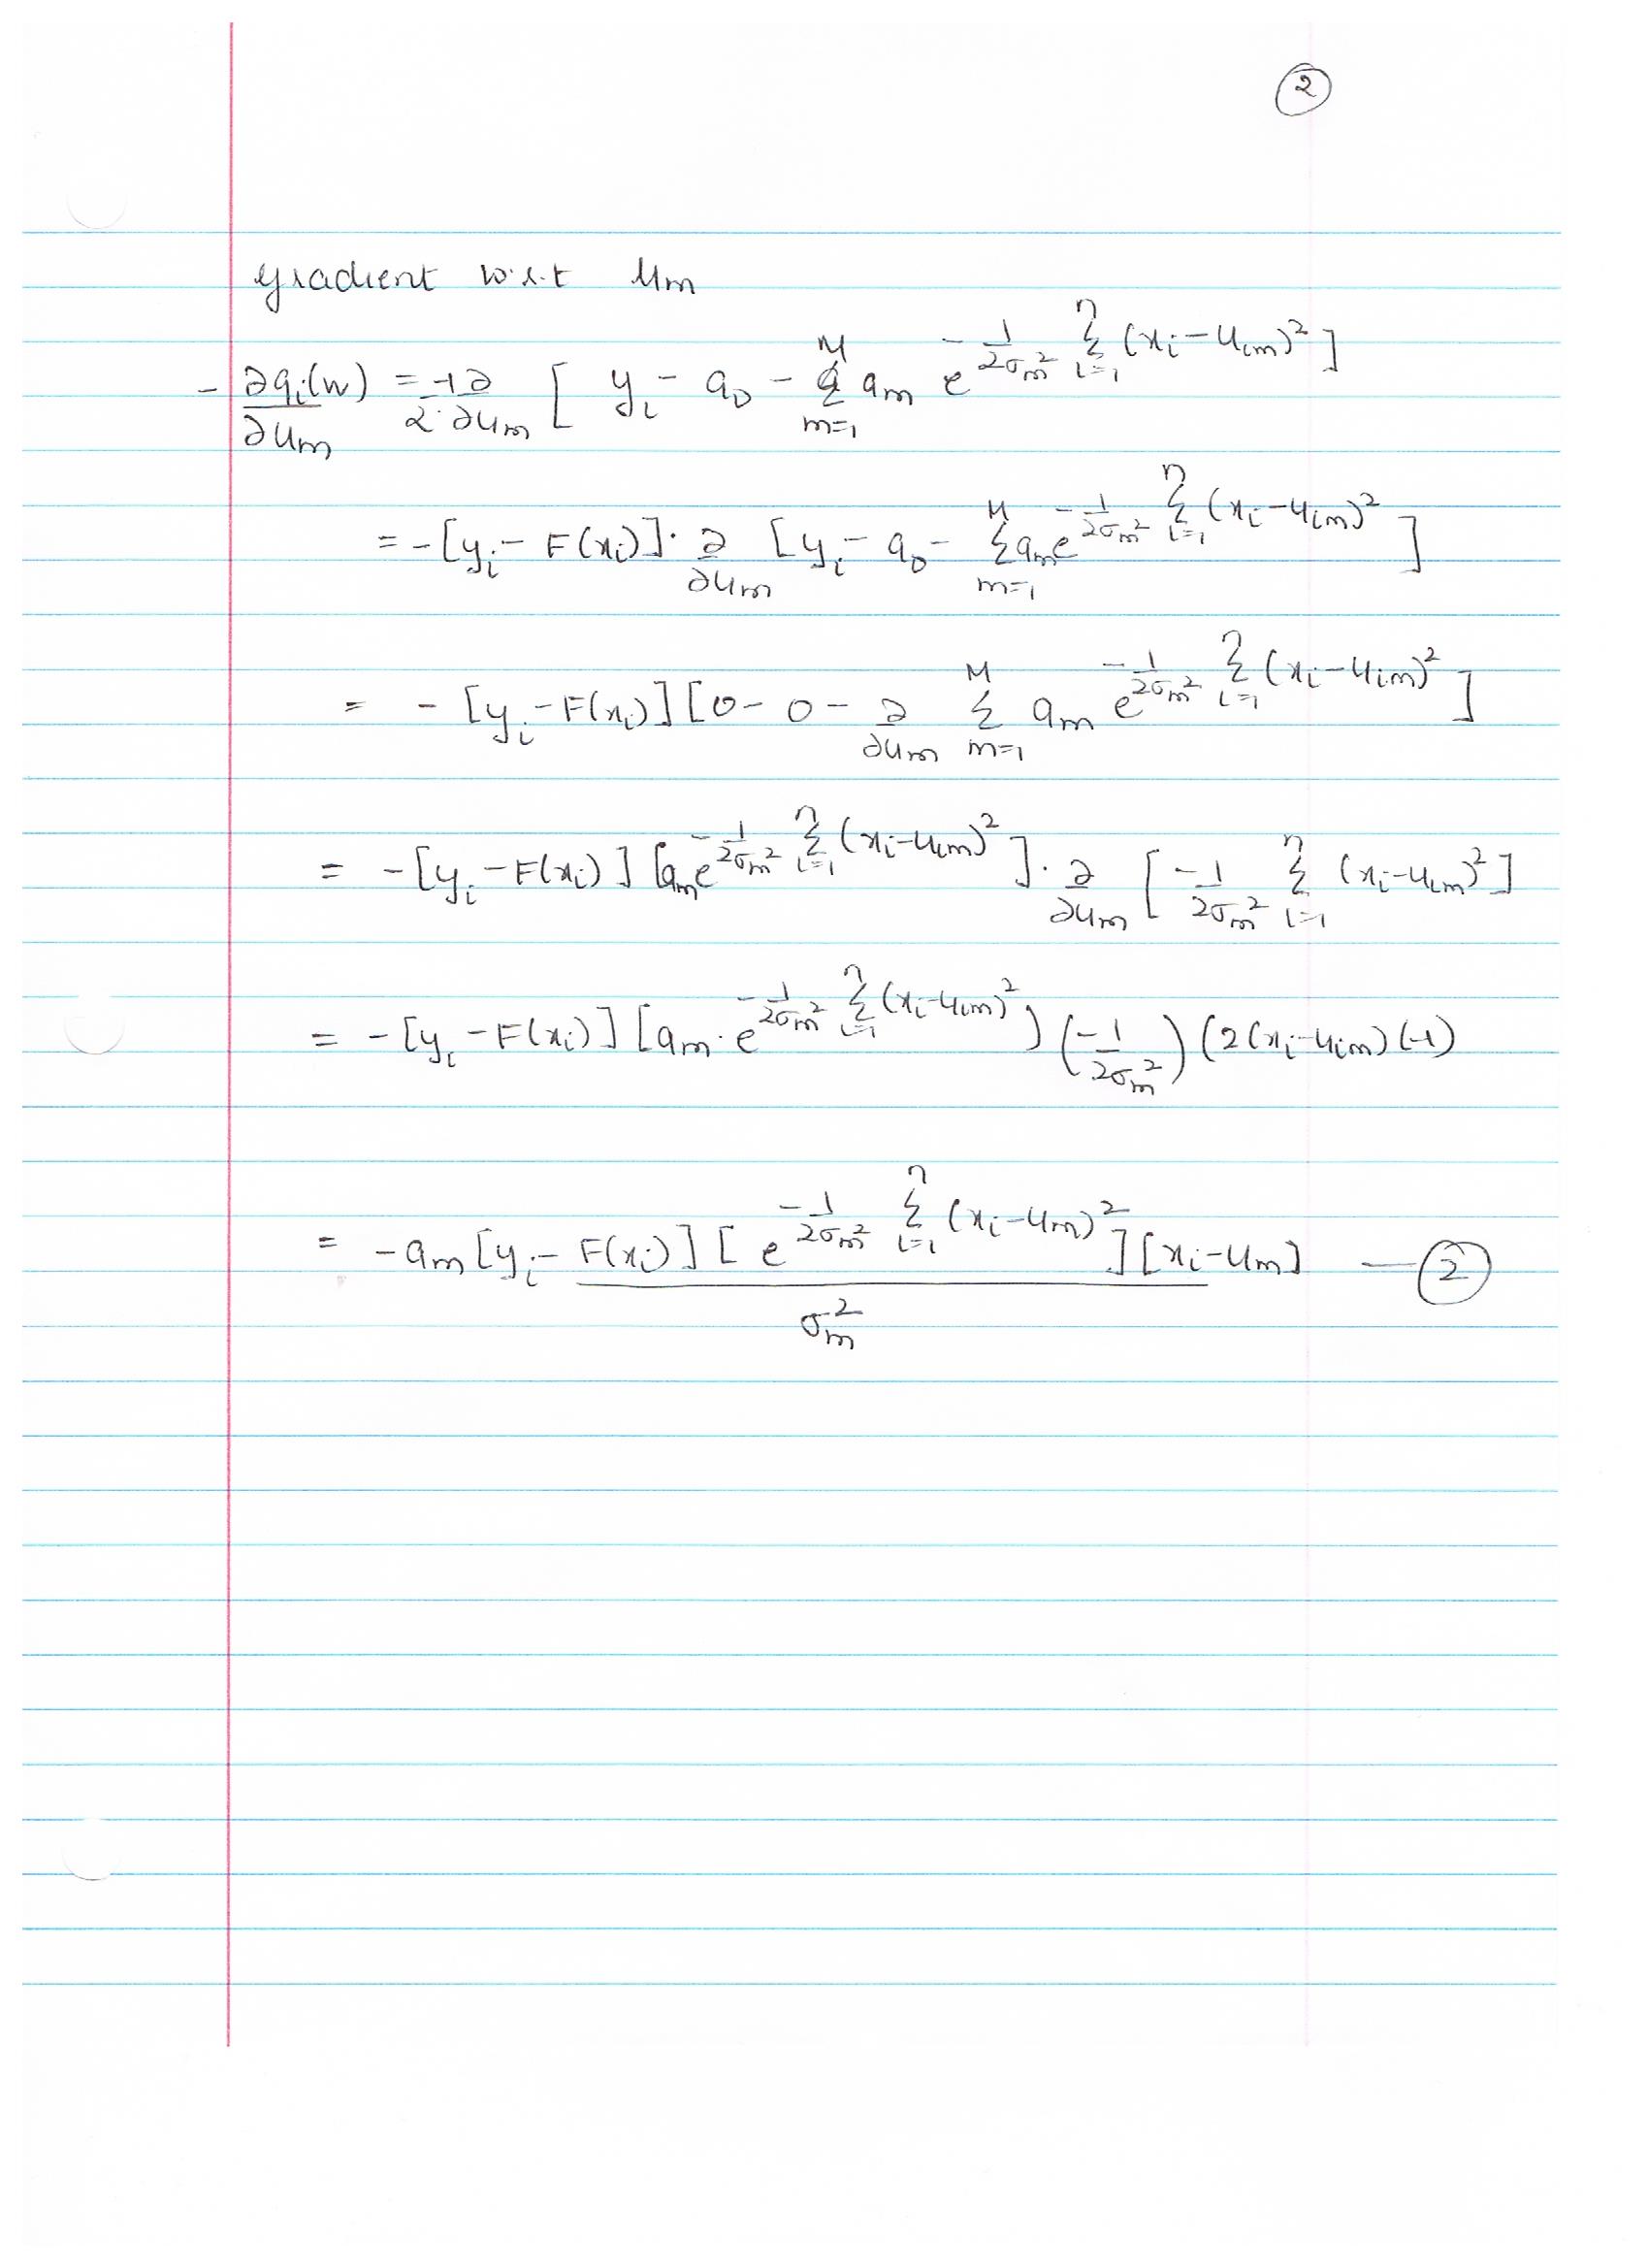 ②
gradient w.r.t μm
- ∂qᵢ(w)/∂μm = -1/2 ∂/∂μm [ yᵢ - a₀ - Σ_{m=1}^{M} am e^{-1/(2σm²) Σ_{i=1}^{n} (xᵢ-μim)²} ]
= -[yᵢ - F(xᵢ)] · ∂/∂μm [yᵢ - a₀ - Σ_{m=1}^{M} am e^{-1/(2σm²) Σ_{i=1}^{n} (xᵢ-μim)²} ]
= - [yᵢ - F(xᵢ)] [0 - 0 - ∂/∂μm Σ_{m=1}^{M} am e^{-1/(2σm²) Σ_{i=1}^{n} (xᵢ-μim)²} ]
= -[yᵢ - F(xᵢ)] [am e^{-1/(2σm²) Σ_{i=1}^{n} (xᵢ-μim)²} ] · ∂/∂μm [ -1/(2σm²) Σ_{i=1}^{n} (xᵢ-μim)² ]
= -[yᵢ - F(xᵢ)] [am · e^{-1/(2σm²) Σ_{i=1}^{n} (xᵢ-μim)²} ) (-1/(2σm²)) (2(xᵢ-μim)(-1)
= -am [yᵢ - F(xᵢ)] [ e^{-1/(2σm²) Σ_{i=1}^{n} (xᵢ-μm)²} ] [xᵢ-μm] / σm² — ②